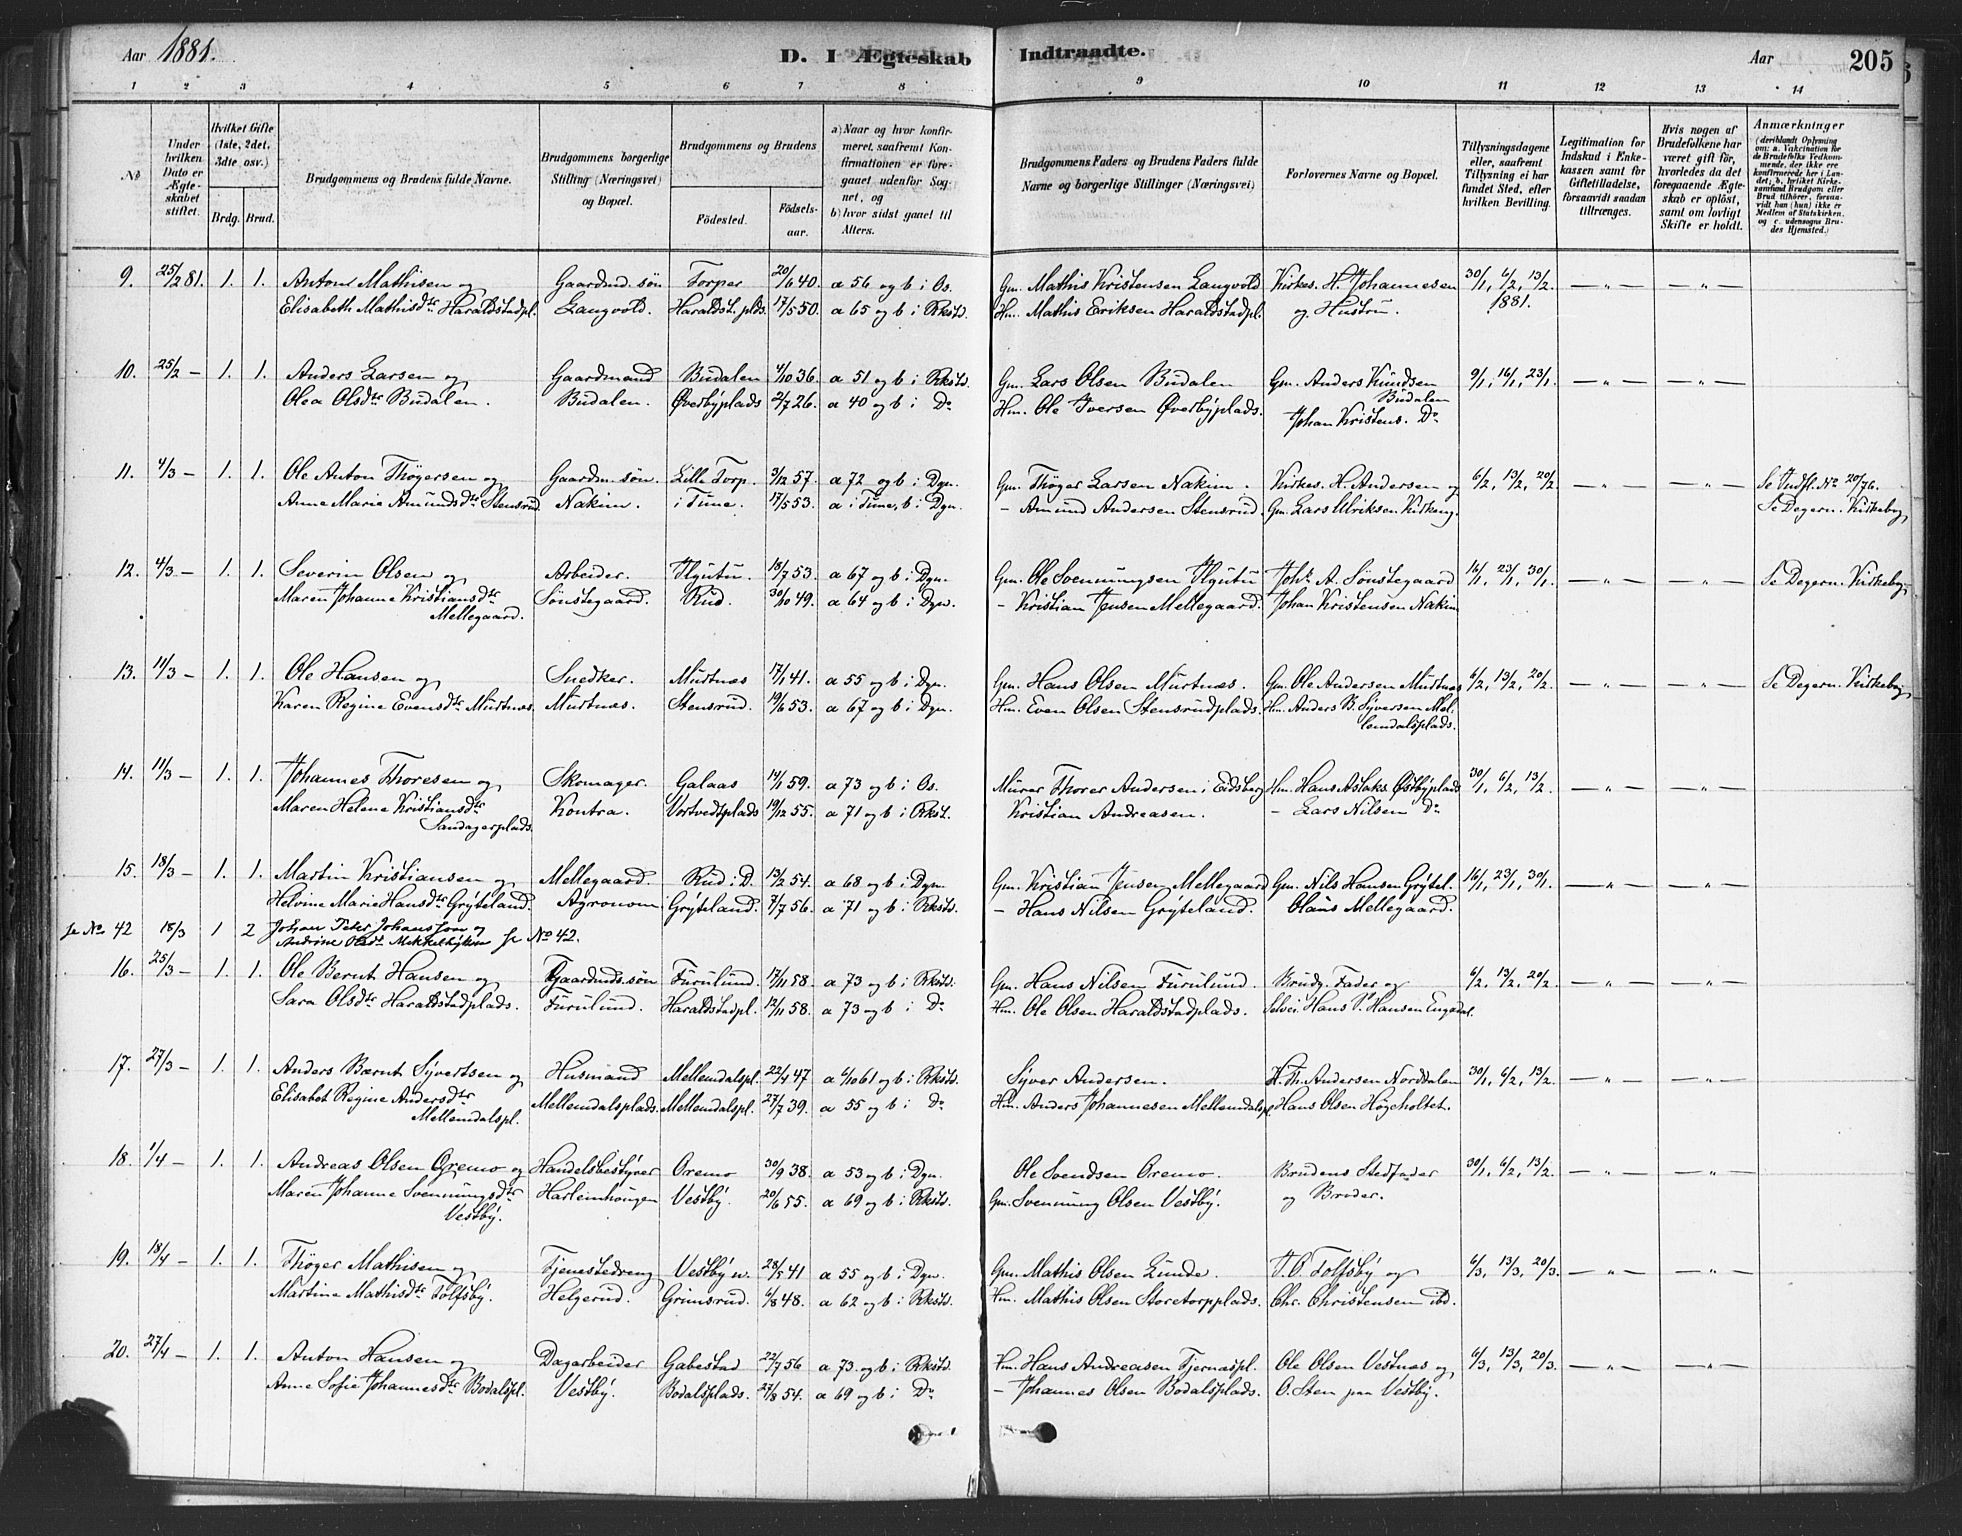 Aar 1881.
D. I Ægteskab Indtraadte.
Aar 205
1 2 3 4 5 6 7 8 9 10 11 12 13 14
No
Under hvilken Dato er Ægteskabet stiftet.
Hvilket Gifte (1ste, 2det, 3dte osv.)
Brdg. Brud.
Brudgommens og Brudens fulde Navne.
Brudgommens borgerlige Stilling (Næringsvei) og Bopæl.
Brudgommens og Brudens
Födested. Födsels-aar.
a) Naar og hvor konfirmeret, saafremt Konfirmationen er foregaaet udenfor Sognet, og
b) hvor sidst gaaet til Alters.
Brudgommens Faders og Brudens Faders fulde Navne og borgerlige Stillinger (Næringsvei)
Forlovernes Navne og Bopæl.
Tillysningsdagene eller, saafremt Tillysning ei har fundet Sted, efter hvilken Bevilling.
Legitimation for Indskud i Enkekassen samt for Giftetilladelse, forsaavidt saadan tiltrænges.
Hvis nogen af Brudefolkene har været gift för, hvorledes da det foregaaende Ægteskab er oplöst, samt om lovligt Skifte er holdt.
Anmærkninger (deriblandt Oplysning om: a. Vakcination for de Brudefolks Vedkommende, der ikke ere konfirmerede her i Landet; b. hvilket Kirkesamfund Brudgom eller Brud tilhörer, forsaavidt han (hun) ikke er Medlem af Statskirken, og c. udensogns Brudes Hjemsted.)
9. 25/2 81. 1. 1. Anton Mathisen og Gaardmd. søn Torper 20/6 40 a 56 og b i Os. Gm. Mathis Kristensen Langvold Kirkes. H. Johannesen 30/1, 6/2, 13/2
Elisabeth Mathisdtr Haraldstadpl. Langvold. Haraldst. plds. 17/5 50. a 65 og b i Rksts. Hm. Mathis Eriksen Haraldstadpl. og Hustru. 1881.
10. 25/2 — 1. 1. Anders Larsen og Gaardmand Budalen 4/10 36. a 51 og b i Rksts. Gm. Lars Olsen Budalen Gm. Anders Knudsen Budalen 9/1, 16/1, 23/1
Olea Olsdtr Budalen. Budalen. Øverbyplads 2/7 26. a 40 og b i Do Hm. Ole Iversen Øverbyplads. Johan Kristens. Do
11. 4/3 — 1. 1. Ole Anton Thøgersen og Gaardm. søn. Lille Torp. 3/12 57. a 72 og b i Dgn. Gm. Thøger Larsen Nakim. Kirkes. H. Andersen og 6/2, 13/2, 20/2 Se Indfl. No 20/76.
Anne Marie Amundsdtr Stensrud Nakim. i Tune. 17/5 53. a i Tune, b i Dgn. — Amund Andersen Stensrud. Gm. Lars Ulriksen Kirkeng. Se Degern. Kirkebog
12. 4/3 — 1. 1. Severin Olsen og Arbeider. 18/7 53. a 67 og b i Dgn. Gm. Ole Svenningsen Joh. A. Sønstegaard 16/1, 23/1, 30/1. Se Degern. Kirkebog
Maren Johanne Kristiansdtr Mellegaard. Sønstegaard. Rud. 30/10 49. a 64 og b i Dgn. — Kristian Jensen Mellegaard. Johan Kristensen Nakim
13. 11/3 — 1. 1. Ole Hansen og Snedker. Murtnæs 17/1 41. a 55 og b i Dgn. Gm. Hans Olsen Murtnæs. Gm. Ole Andersen Murtnæs 6/2, 13/2, 20/2. Se Degern. Kirkebog
Karen Regine Evensdtr Murtnæs. Murtnæs. Stensrud. 19/6 53. a 67 og b i Dgn. Hm. Even Olsen Stensrudplads. Hm. Anders B. Syversen Mellemdalsplads.
14. 11/3 — 1. 1. Johannes Thoresen og Skomager. Galaas 14/1 59. a 73 og b i Os. Murer Thorer Andersen i Eidsberg Hm. Hans Aslaks. Østbyplads 30/1, 6/2, 13/2.
Maren Helene Kristiansdtr Sandagerplads. Kontra. Vortvedtplads 19/12 55. a 71 og b i Rkst. Kristian Andreasen. — Lars Nilsen Do
15. 18/3 — 1. 1. Martin Kristiansen og Mellegaard. Rud i D. 13/2 54. a 68 og b i Dgn. Gm. Kristian Jensen Mellegaard Gm. Nils Hansen Grytel. 16/1, 23/1, 30/1.
Helvine Marie Hansdtr Gryteland. Agronom Gryteland. 7/7 56. a 71 og b i Rksts. — Hans Nilsen Gryteland. Olaus Mellegaard.
se No 42 18/3 1 2 Johan Peter Johansson og
Andrine Olsdtr se No 42.
16. 25/3 — 1. 1. Ole Bernt Hansen og Gaardmds. søn Furulund. 17/11 58. a 73 og b i Rksts. Gm. Hans Nilsen Furulund. Brudg. Fader og 6/2, 13/2, 20/2.
Sara Olsdtr Haraldstadplads. Furulund. Haraldstadpl. 12/11 58. a 73 og b i Do Hm. Ole Olsen Haraldstadplads. Selvei. Hans P. Hansen Engsdal.
17. 27/3 — 1. 1. Anders Bernt Syvertsen og Husmand Mellemdalspl. 22/4 47 a 6/10 61 og b i Rksts. Syver Andersen. H. Th. Andersen Norddalen 30/1, 6/2, 13/2.
Elisabet Regine Andersdtr Mellemdalspl. Mellemdalsplads. Mellemdalspl. 27/7 39. a 55 og b i Do Hm. Anders Johannesen Mellemdalspl. Hans Olsen Høgeholtet.
18. 1/4 — 1. 1. Andreas Olsen Oremo og Handelsbestyrer Oremo 30/9 38. a 53 og b i Dgn. Ole Svendsen Oremo. Brudens Stedfader 30/1, 6/2, 13/2.
Maren Johanne Svenningsdtr Vestby. Harlemhougen Vestby. 20/6 55. a 69 og b i Rksts. Gm. Svenning Olsen Vestby. og Broder.
19. 18/4 — 1. 1. Thøger Mathisen og Tjenestedreng Vestby n. 28/5 41 a 55 og b i Dgn. Gm. Mathis Olsen Lunde. T. O. Tolfsby og 6/3, 13/3, 20/3.
Martine Mathisdtr Tolfsby. Helgerud. Grimsrud. 6/8 48. a 62 og b i Rksts. Hm. Mathis Olsen Storetorpplads. Chr. Christensen ibd.
20. 27/4 — 1. 1. Anton Hansen og Dagarbeider Gabestad 22/7 56 a 73. og b i Rksts. Hm. Hans Andreasen Tjernæspl. Ole Olsen Vestnæs og 6/3, 13/3, 20/3.
Anne Sofie Johannesdtr Bodalspl. Vestby. Bodalsplads. 27/8 54. a 69 og b i Do — Johannes Olsen Bodalsplads. O. Sten paa Vestby.